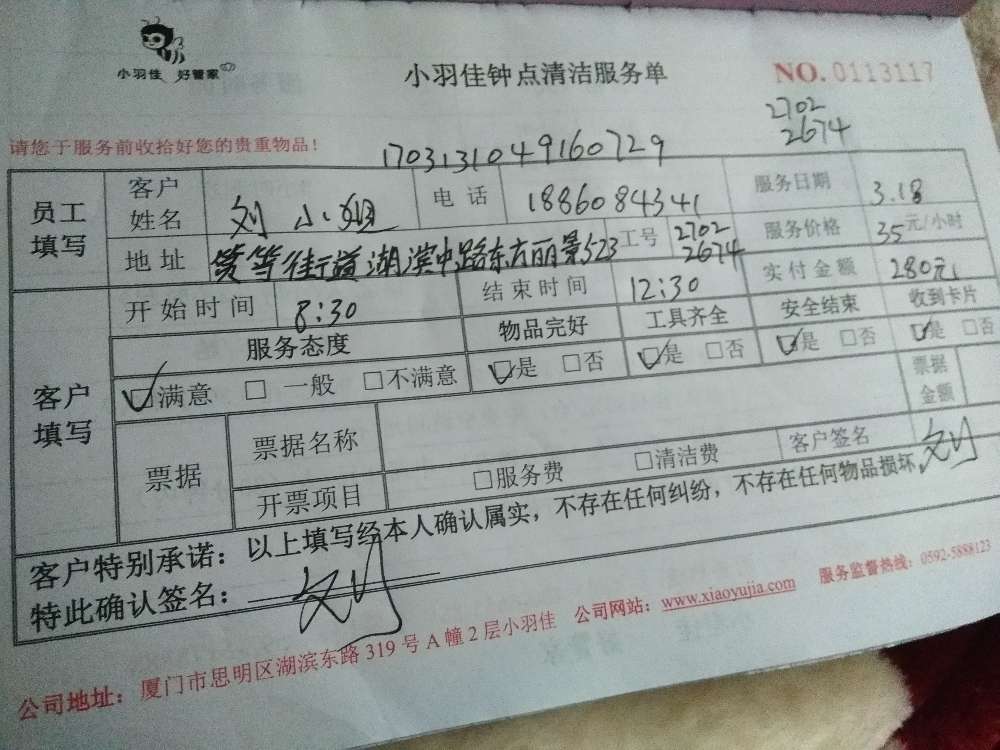 小羽佳 好管家
小羽佳钟点清洁服务单
NO. 0113117
2702
2674
请您于服务前收拾好您的贵重物品！
1703131049160729
员工填写 客户姓名 刘小姐 电话 1886084341 服务日期 3.18
地址 筼筜街道湖滨中路东方丽景523 工号 2702 2674 服务价格 35元/小时
客户填写 开始时间 8:30 结束时间 12:30 实付金额 280元
服务态度 物品完好 工具齐全 安全结束 收到卡片
☑满意 □ 一般 □不满意 ☑是 □否 ☑是 □否 ☑是 □否 ☑是 □否
票据 票据名称 票据金额
开票项目 □服务费 □清洁费 客户签名 刘
客户特别承诺：以上填写经本人确认属实，不存在任何纠纷，不存在任何物品损坏，
特此确认签名： 刘
公司地址：厦门市思明区湖滨东路 319 号 A 幢 2 层小羽佳 公司网站：www.xiaoyujia.com 服务监督热线：0592-5888123